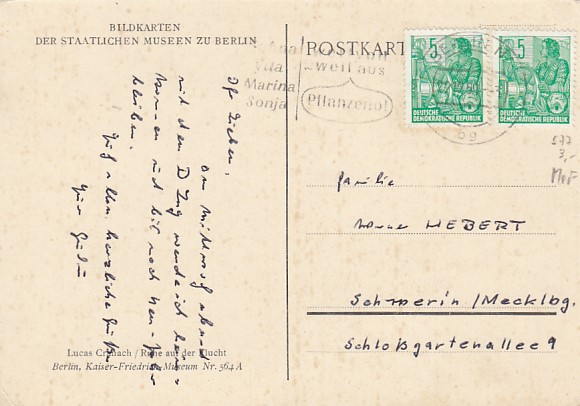 BILDKARTEN
DER STAATLICHEN MUSEEN ZU BERLIN
POSTKART
Vita
Marina
Sonja
weil aus
Pflanzenöl
5
DEUTSCHE
DEMOKRATISCHE REPUBLIK
5
DEUTSCHE
DEMOKRATISCHE REPUBLIK
577
3,-
Ihr Lieben,
am Mittwoch abend
mit dem D Zug werde ich
kommen und bis nach
bleiben.
Euch allen herzliche Grüße
Familie
HEBERT
Schwerin / Mecklbg.
Schloßgartenallee 9
Lucas Cranach / Ruhe auf der Flucht
Berlin, Kaiser-Friedrich-Museum Nr. 564 A